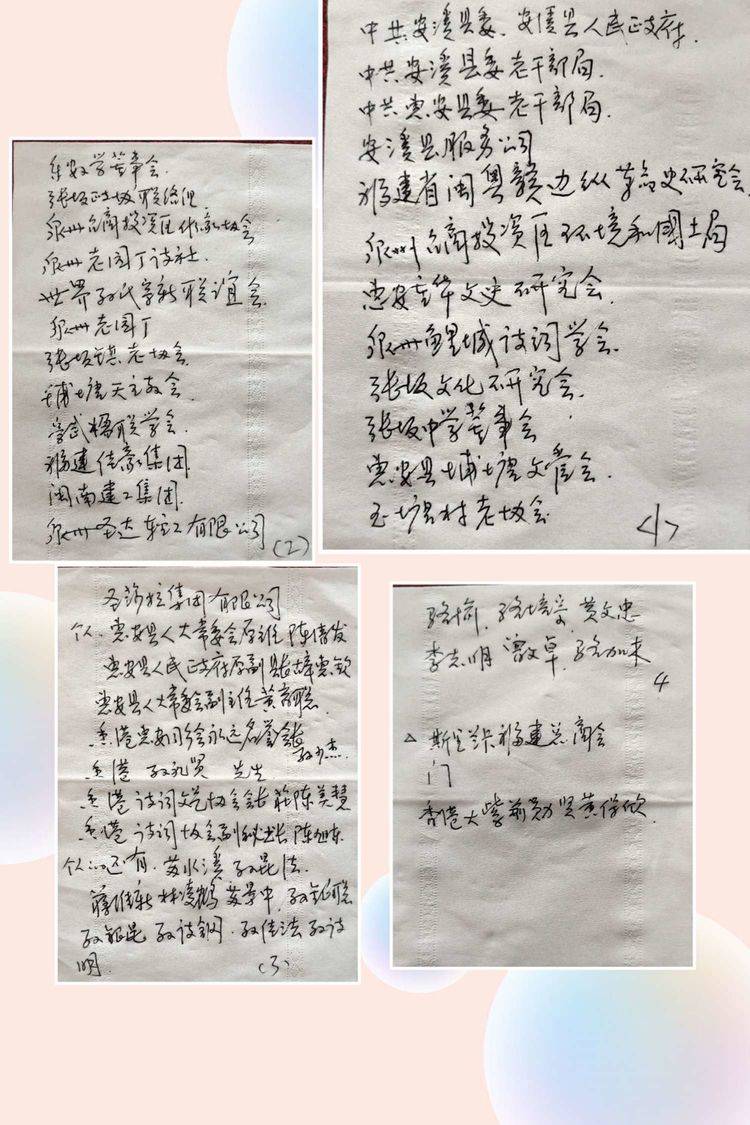 中共安溪县委、安溪县人民政府.
中共安溪县委老干部局.
中共惠安县委老干部局.
安溪县服务公司
福建省闽粤赣边纵革命史研究会
泉州台商投资区环境和國土局
惠安 文史研究会.
泉州鲤城诗词学会.
张坂文化研究会.
张坂中学董事会
惠安县埔塘文管会.
玉塘村老协会
<1>
中学董事会.
张坂 联络组
泉州台商投资区作家协会
泉州老园丁诗社.
世界孙氏宗新联谊会
泉州老园丁
张坂镇老协会.
埔塘天主教会.
楹联学会.
福建佳豪集团.
闽南建工集团.
泉州圣达轻工有限公司
(2)
集团有限公司
个人. 惠安县人大常委会原主任陈
惠安县人民政府原副县长 惠钦
惠安县人大常委会副主任黄 聪.
香港惠安同乡会永远名誉会长
孙少杰
香港 孙礼贤 先生
香港诗词文艺协会会长 陈美慧
香港诗词协会副秘书长陈旭东
个人还有. 苏水溪 孙昆法.
林凌鹤 苏景中, 孙 聪
孙 昆 孙诗钢. 孙佳法 孙诗
明.
(3)
骆 , 骆培 , 黄文忠
李志明 曾文卓, 骆加来
4
△ 斯里兰卡福建总商会
门
香港大紫荆勋贤黄保欣.